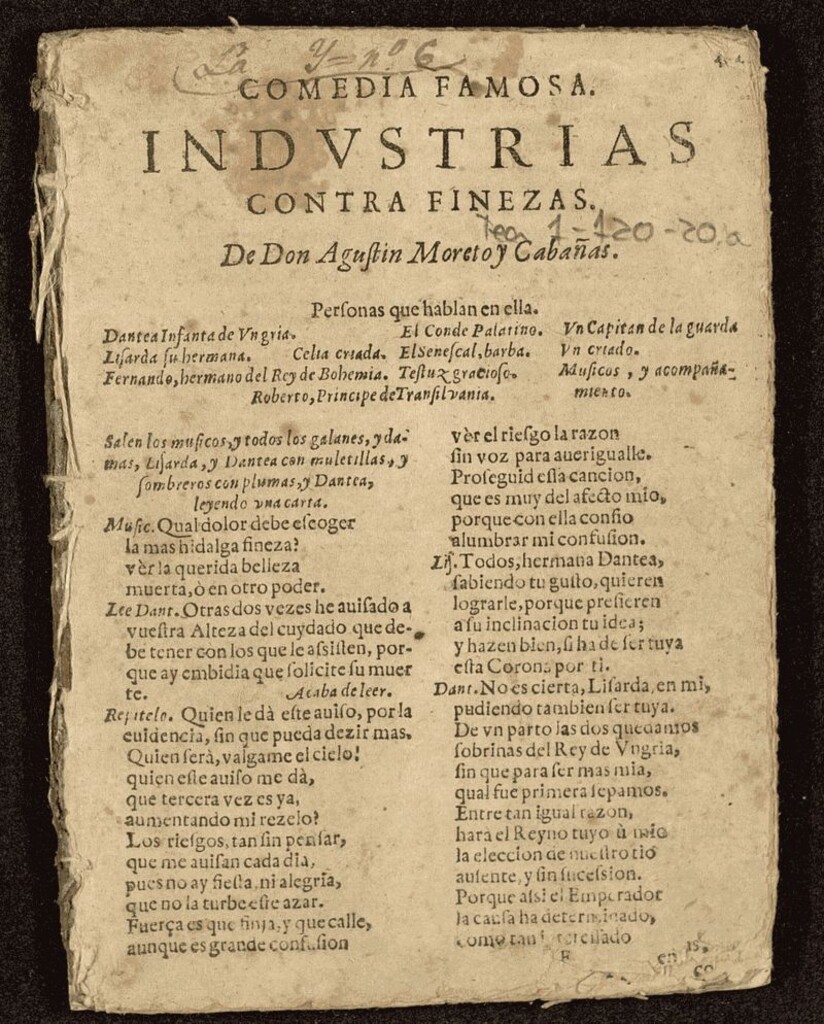 La Y= nº 6
COMEDIA FAMOSA.
INDVSTRIAS
CONTRA FINEZAS.
Tea 1-120-20,a
De Don Aguſtin Moreto y Cabañas.
Perſonas que hablan en ella.
Dantea Infanta de Vngria.
Liſarda ſu hermana. Celia criada.
Fernando, hermano del Rey de Bohemia.
El Conde Palatino.
El Seneſcal, barba.
Teſtuz gracioſo.
Vn Capitan de la guarda
Vn criado.
Muſicos, y acompaña-
miento.
Roberto, Principe de Tranſilvania.
Salen los muſicos, y todos los galanes, y da-
mas, Liſarda, y Dantea con muletillas, y
ſombreros con plumas, y Dantea,
leyendo vna carta.
Muſic. Qual dolor debe eſcoger
la mas hidalga fineza?
vèr la querida belleza
muerta, ò en otro poder.
Lee Dant. Otras dos vezes he auiſado a
vueſtra Alteza del cuydado que de-
be tener con los que le aſsiſten, por-
que ay embidia que ſolicite ſu muer
te. Acaba de leer.
Repitelo. Quien le dà eſte auiſo, por la
euidencia, ſin que pueda dezir mas.
Quien ſerà, valgame el cielo!
quien eſte auiſo me dà,
que tercera vez es ya,
aumentando mi rezelo?
Los rieſgos, tan ſin penſar,
que me auiſan cada dia,
pues no ay fieſta, ni alegria,
que no la turbe eſte azar.
Fuerça es que finja, y que calle,
aunque es grande confuſion
vèr el rieſgo la razon
ſin voz para auerigualle.
Proſeguid eſſa cancion,
que es muy del afecto mio,
porque con ella confio
alumbrar mi confuſion.
Liſ. Todos, hermana Dantea,
ſabiendo tu guſto, quieren
lograrle, porque prefieren
a ſu inclinacion tu idea;
y hazen bien, ſi ha de ſer tuya
eſta Corona por ti.
Dant. No es cierta, Liſarda, en mi,
pudiendo tambien ſer tuya.
De vn parto las dos quedamos
ſobrinas del Rey de Vngria,
ſin que para ſer mas mia,
qual fue primera ſepamos.
Entre tan igual razon,
harà el Reyno tuyo ù mio
la eleccion de nueſtro tio
auſente, y ſin ſuceſsion.
Porque aſsi el Emperador
la cauſa ha determinado,
como tan
en
co